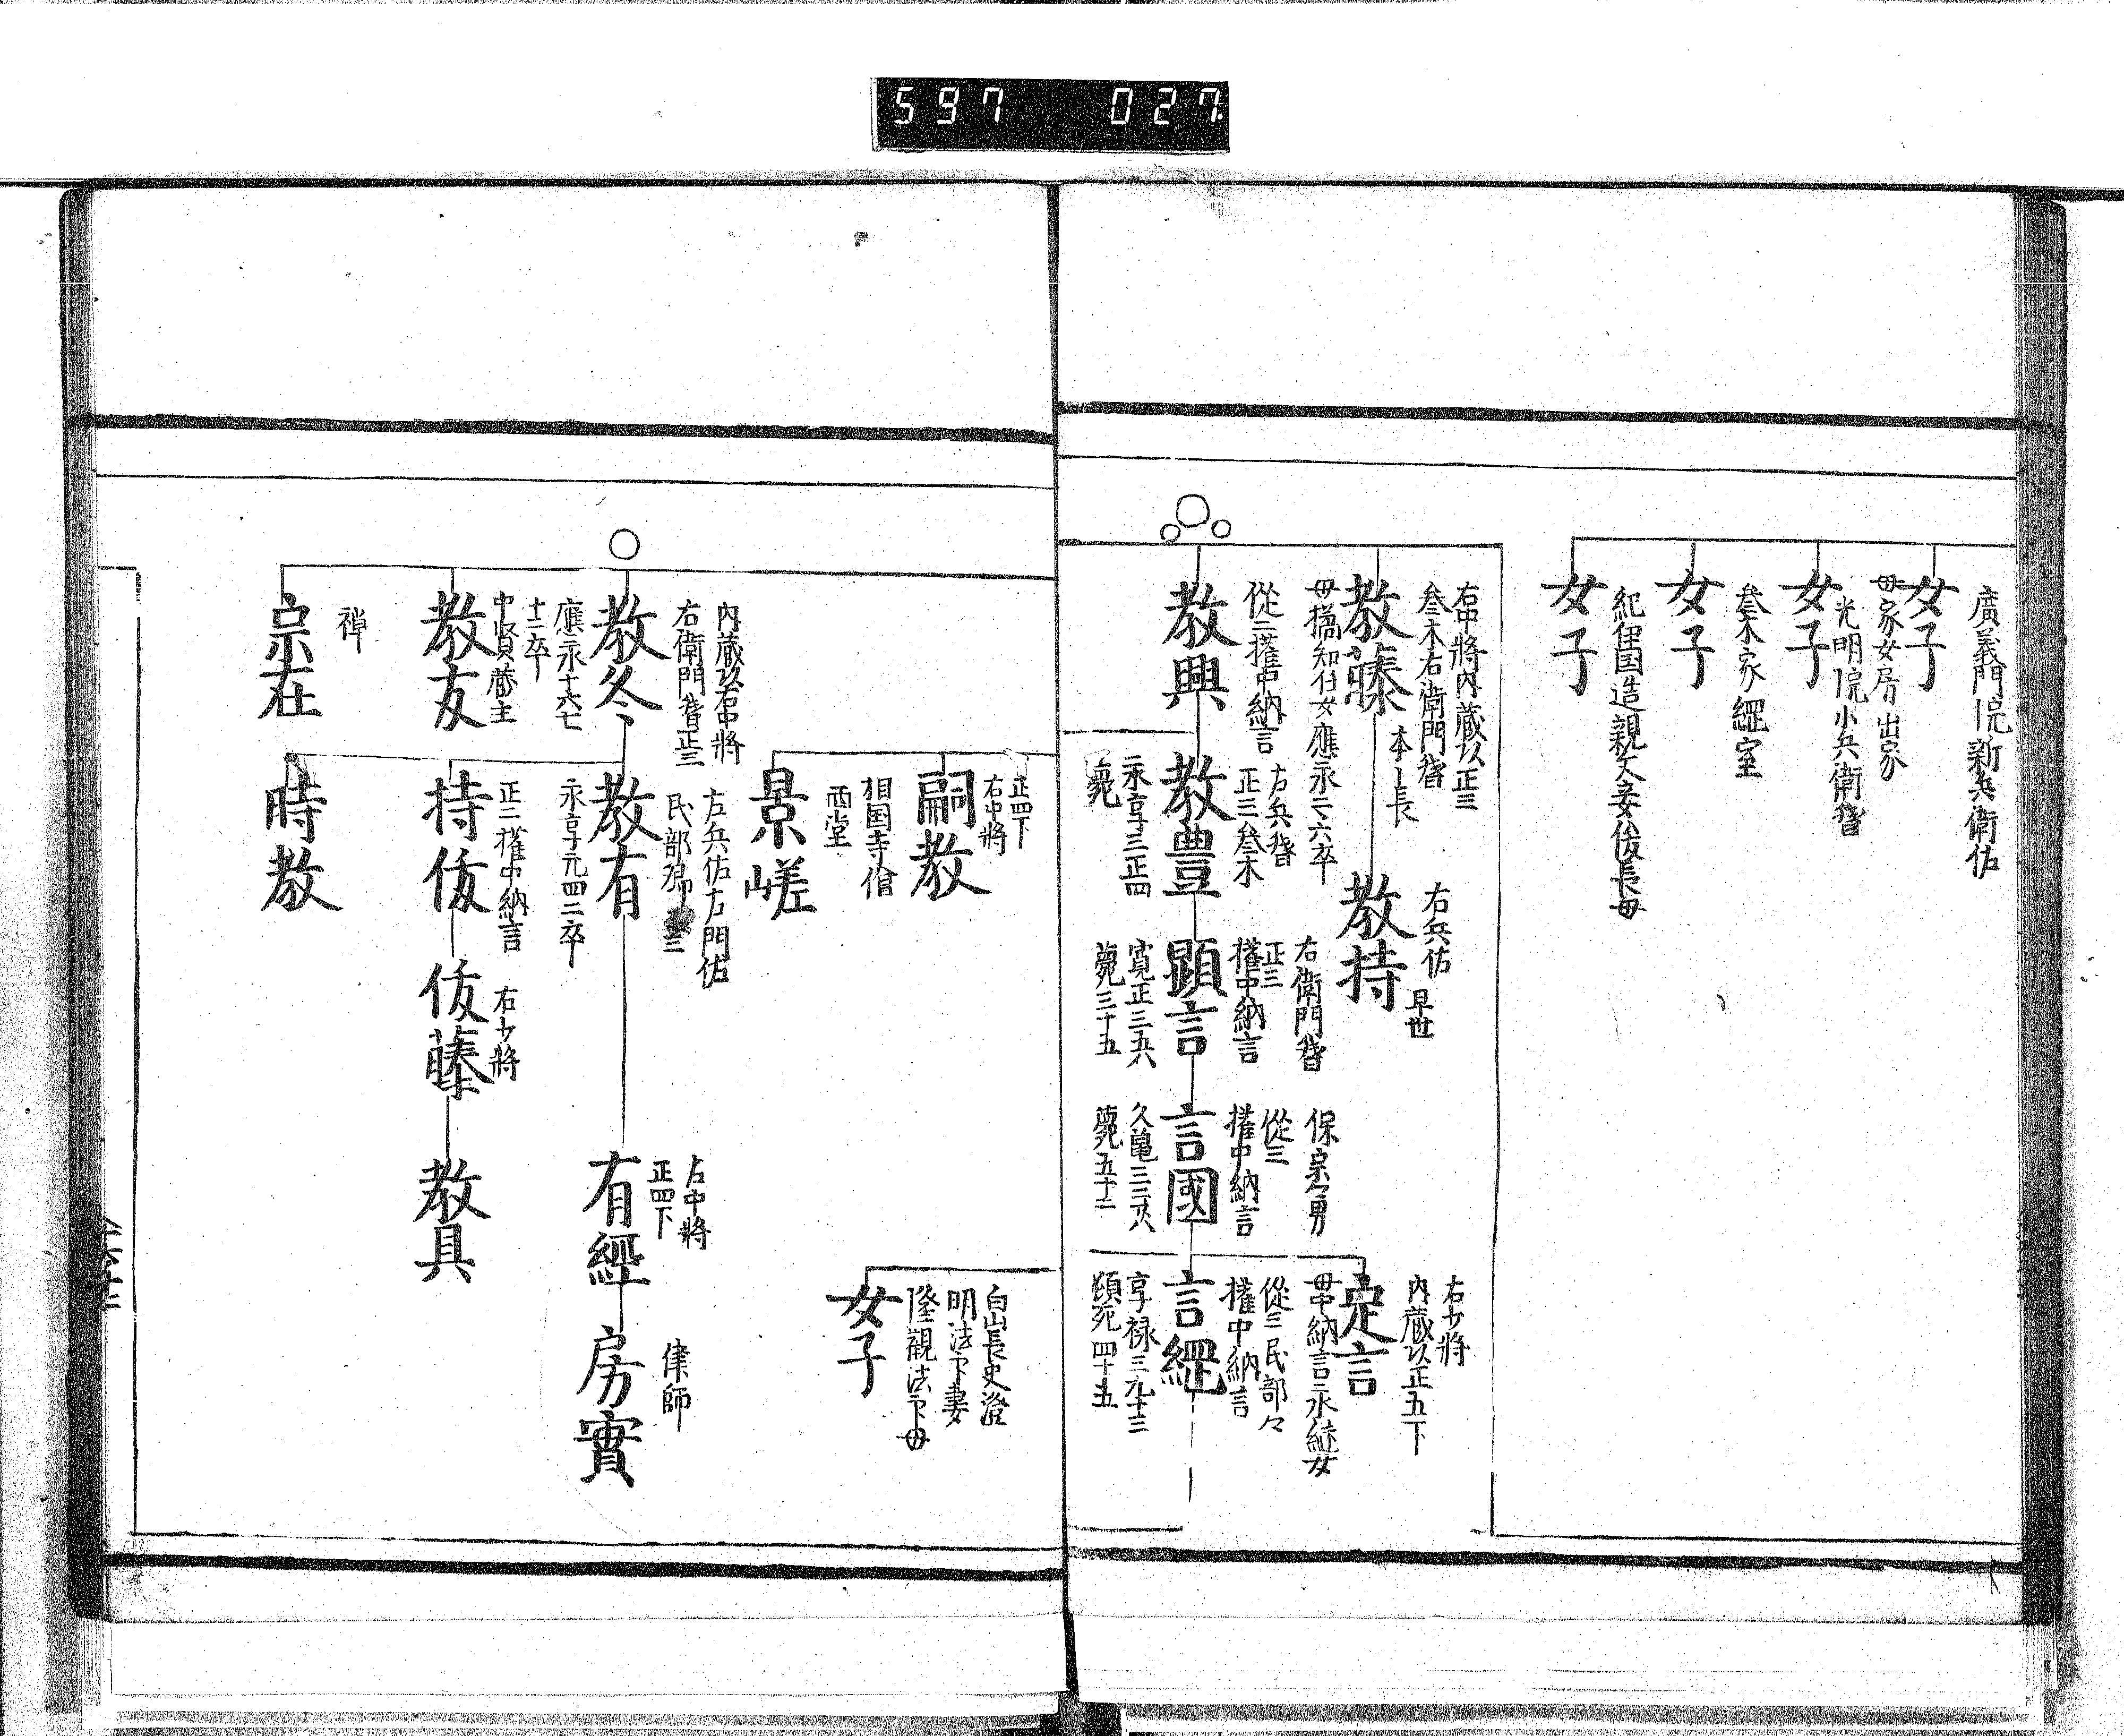 597 027
廣義門院新兵衛佐
女子
母家女房出家
光明院小兵衛督
女子
参木家經室
女子
紀伊国造親文妾俊長母
女子
右中將内蔵以正三
参木右衛門督
本-長
教藤
右兵佐
早世
教持
母橘知仕女應永二六卒
從二権中納言
教興
左兵督
正三参木
教豊
永享三正四
薨
右衛門督
正三
権中納言
顕言
寛正三五六
薨三十五
保宗
從三
権中納言
言國
薨五十二
右少將
内蔵以正五下
定言
母中納言永継女
從三民部々
権中納言
言綱
享禄三九十三
頓死四十五
正四下
右中將
嗣教
相国寺僧
西堂
景嵯
白山長吏澄
明法下妻
隆觀法下母
女子
内蔵以右中將
右衛門督正三
教冬
應永十六七
十二卒
左兵佐左門佐
民部卿
教有
永享元四二卒
左中將
正四下
有經
律師
房實
教友
正二権中納言
持俊
右少將
俊藤
教具
禅
宗在
時教